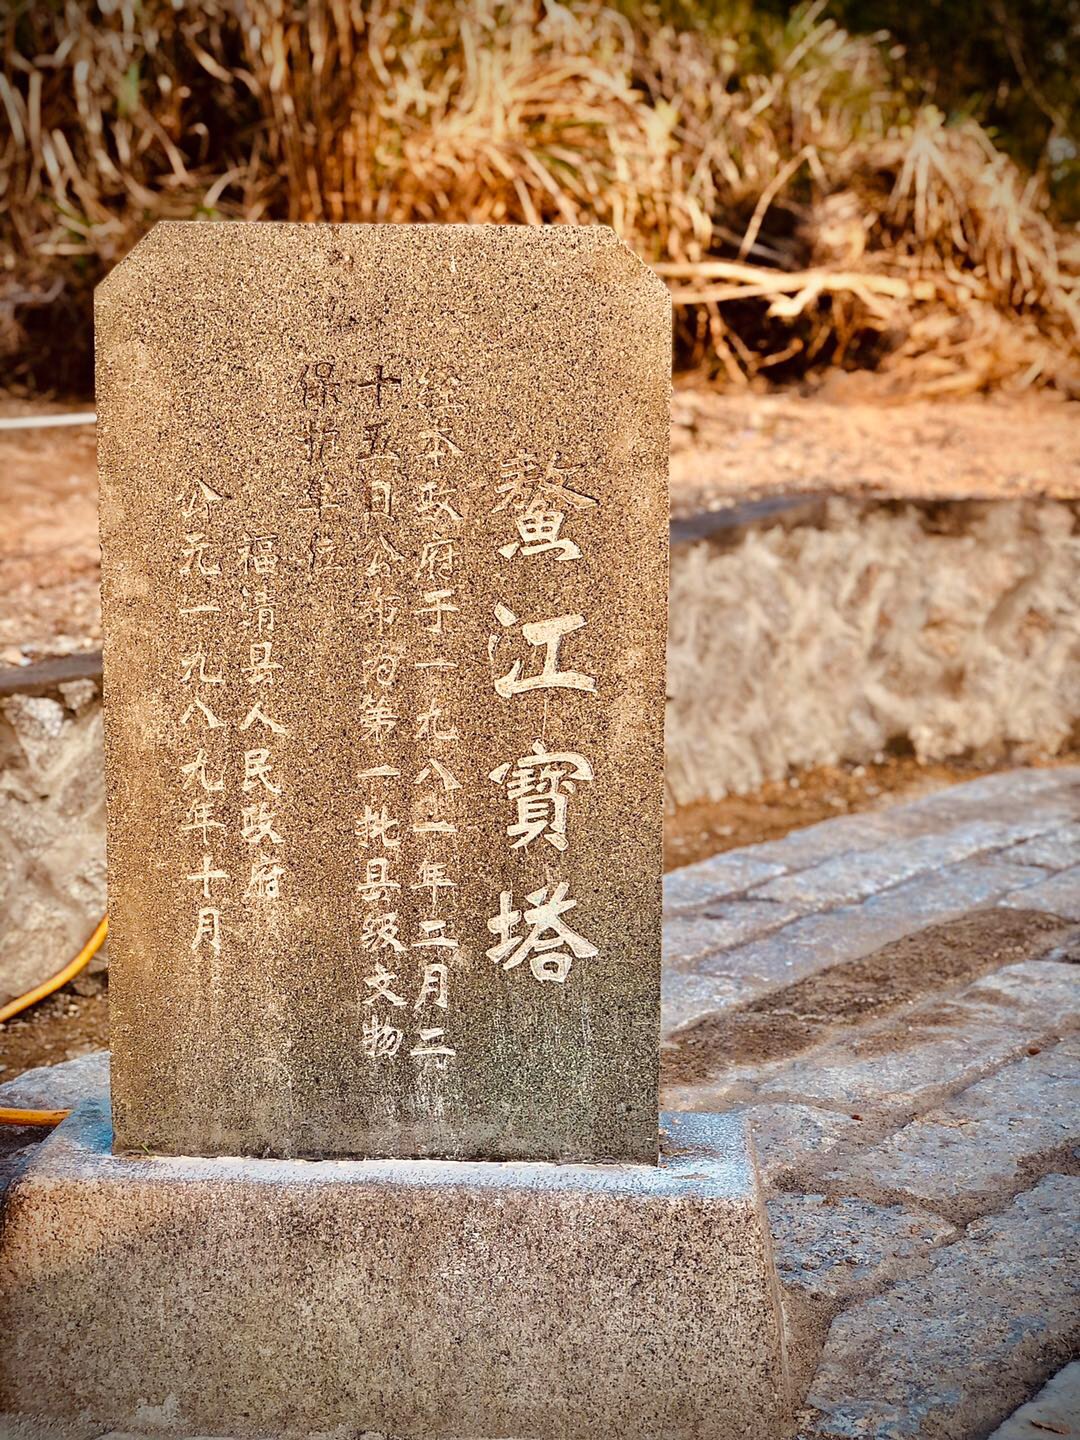 鰲江寶塔
经本政府于一九八一年二月二
十五日公布为第一批县级文物
保护单位
福清县人民政府
公元一九八九年十月